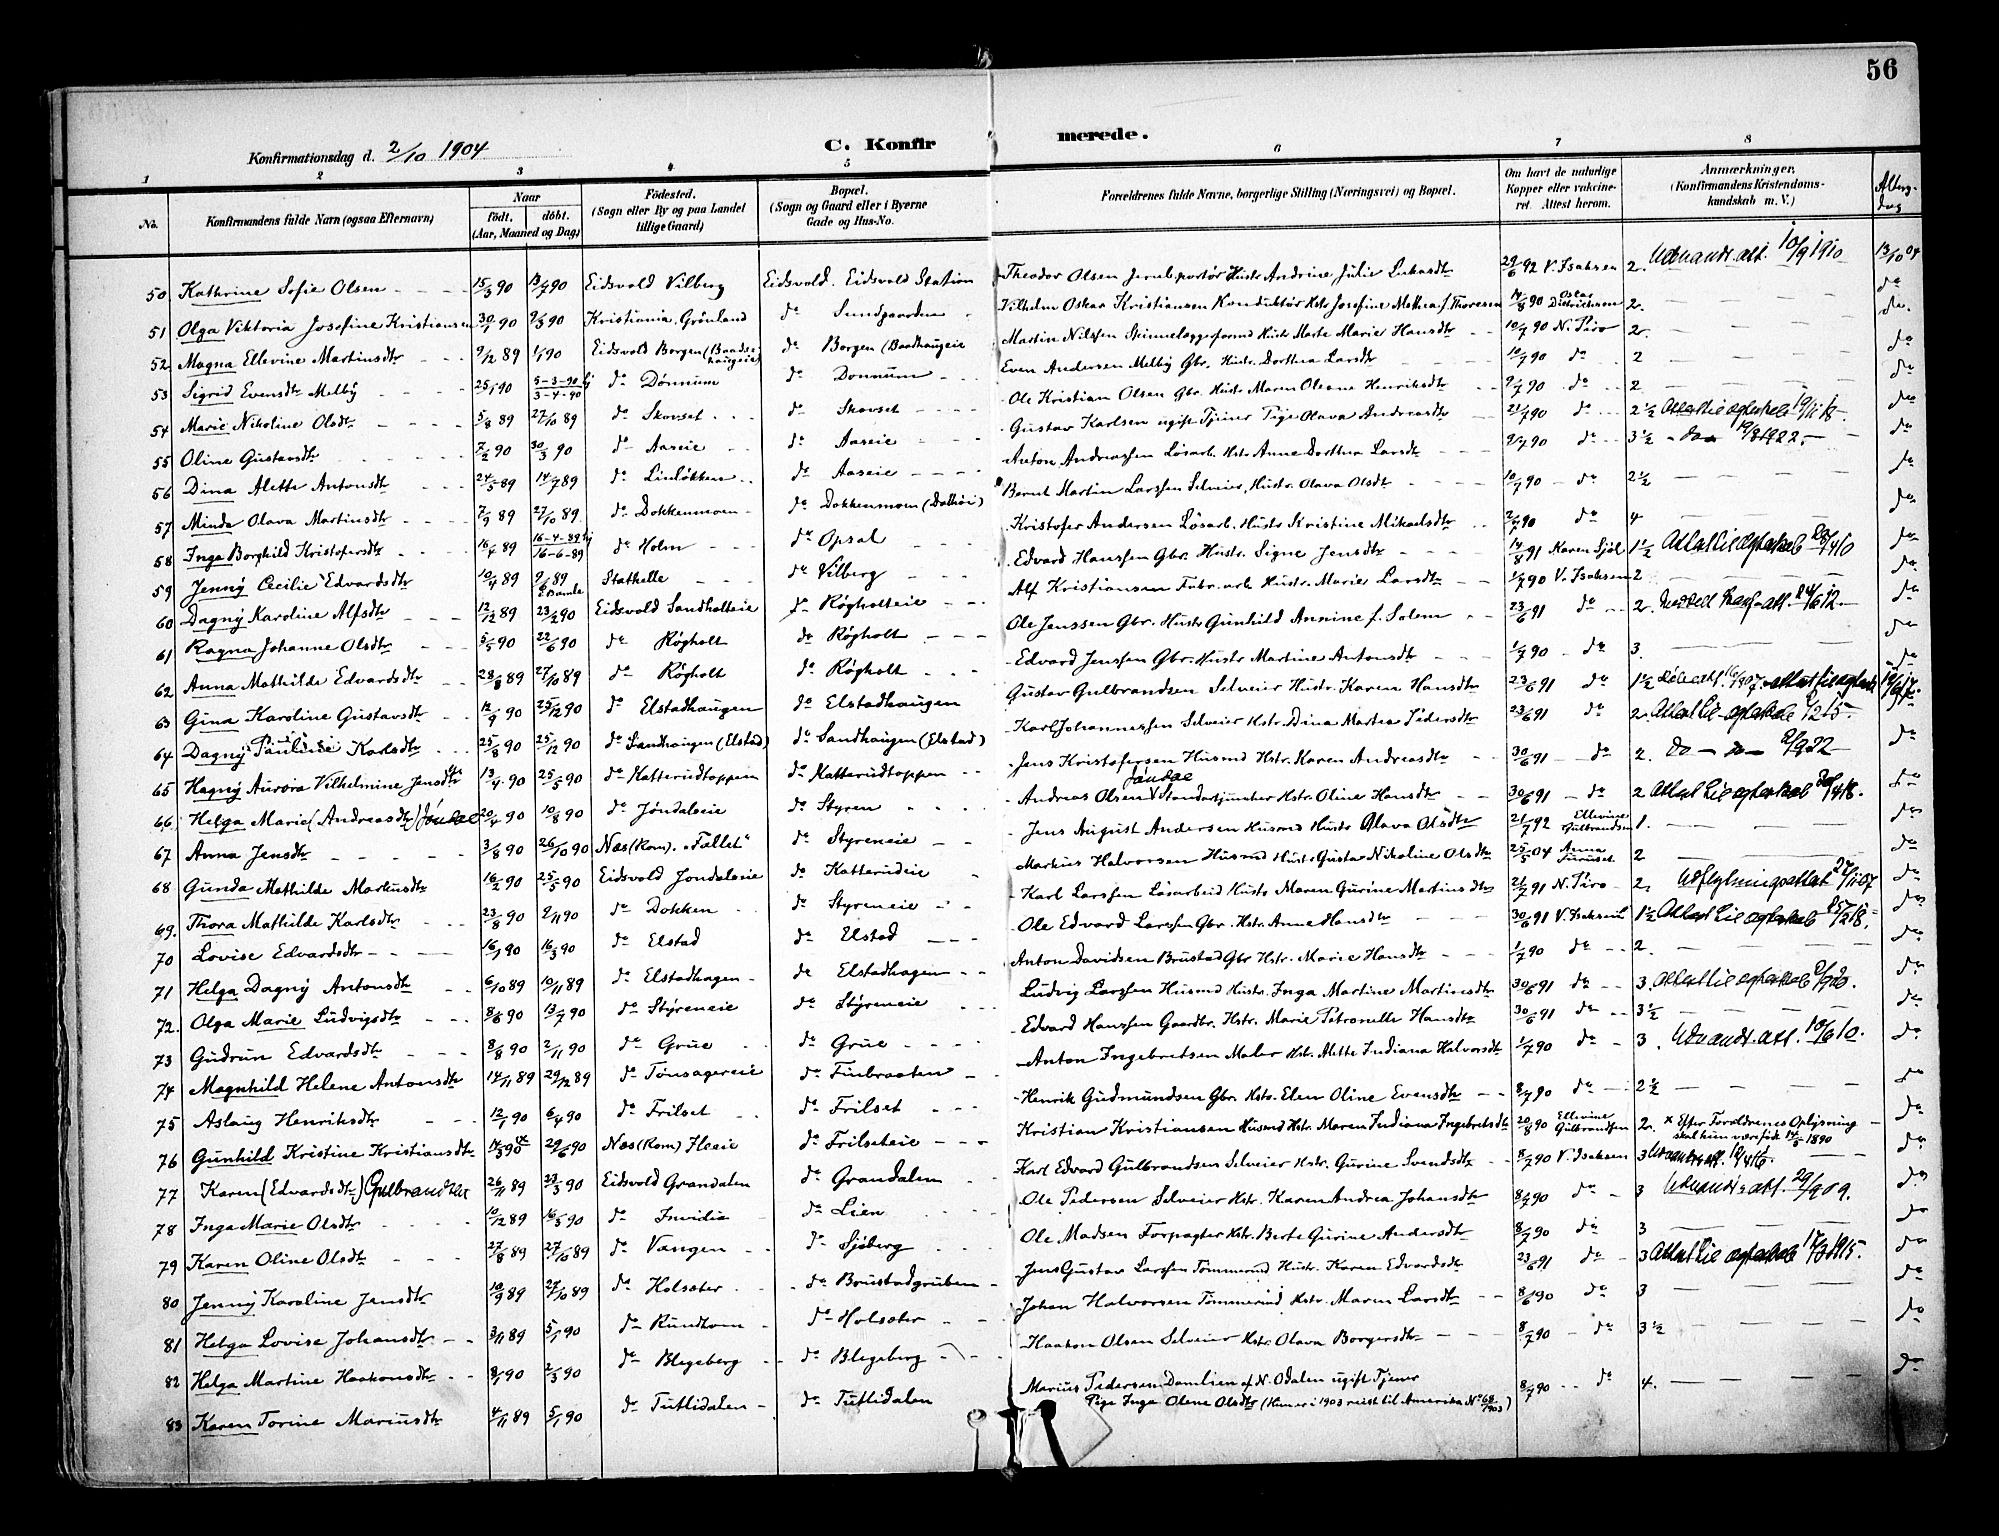 56
Konfirmationsdag d. 2/10 1904
C. Konfirmerede.
1 2 3 4 5 6 7 8
No. Konfirmandens fulde Navn (ogsaa Efternavn) Naar født. døbt. (Aar, Maaned og Dag) Fødested. (Sogn eller By og paa Landet tillige Gaard) Bopæl. (Sogn og Gaard eller i Byerne Gade og Hus-No. Forældrenes fulde Navne, borgerlige Stilling (Næringsvei) og Bopæl. Om havt de naturlige Kopper eller vaccineret. Attest herom. Anmærkninger. (Konfirmandens Kristendomskundskab m. V.) Altergdag
50 Kathrine Sofie Olsen 15/3 90 13/7 90 Eidsvold Vilberg Eidsvold. Eidsvold Station Theodor Olsen Jernb.portør Hustr Andrine Julie Lukasdtr 29/6 92 V. Isaksen 2. Udvandr. att. 10/9 1910 13/10 04
51 Olga Viktoria Josefine Kristiansen 30/1 90 9/3 90 Kristiania. Grønland do Sundgaarden Vilhelm Oskar Kristiansen Konduktør Hstr Josefine Mathea f. Thoresen 14/8 90 Oskar Dietrichson 2. do
52. Magna Ellevine Martinsdtr 9/12 89 1/1 90 Eidsvold Borgen (Baadshaugeie) do Borgen (Baadhaugeie Martin Nilsen Skinnelæggerformd Hustr Marte Marie Hansdtr 10/7 90 N. Piro 2. do.
53 Sigrid Evensdtr Melby 25/1 90 5-3-90 hj 3-4-90 do Dønnum do Dønnum Even Andersen Melby Gbr. Hustr. Dorthea Larsdtr 10/7 90 do 2 do
54 Marie Nikoline Olsdtr 5/8 89 27/10 89 do Skovset do Skovset Ole Kristian Olsen Gbr. Hustr Maren Oleane Henriksdtr 9/7 90 do 2 do
55 Oline Gustavsdtr 7/2 90 30/3 90 do Aaseie do Aaseie Gustav Karlsen ugift Tjener Pige Olava Andreasdtr 21/7 90 do 2½ do
56 Dina Alette Antonsdtr 24/5 89 14/7 89 do Linløkken do Aaseie Anton Andreassen Løsarb. Hstr Anne Dorthea Larsdtr 9/7 90 do 3½ - do 19/8 1922. do
57 Minda Olava Martinsdtr 7/9 89 27/10 89 do Dokkenmoen do Dokkenmoen (Dalhøi) Bernt Martin Larssen Selveier, Hustr. Olava Olsdtr 10/7 90 do 2½ do
58 Inga Borghild Kristofersdtr 16/4 89 16-4-89 hj 16-6-89 do Holm do Opsal Kristofer Andersen Løsarb. Hustr Kristine Mikaelsdtr 2/7 90 do 4 do
59 Jenny Cecilie Edvardsdtr 10/4 89 9/6 89 i Bamle Stathelle do Vilberg Edvard Hanssen Gbr. Hustr. Signe Jensdtr 14/8 91 Karen Sjøl 1½ do
60 Dagny Karoline Alfsdtr 12/12 89 23/2 90 Eidsvold Sandholteie do Røgholteie Alf Kristiansen Fabr. arb. Hustr. Marie Larsdtr 1/7 90 V. Isaksen 2 do
61 Ragna Johanne Olsdtr 5/5 90 22/6 90 do Røgholt do Røgholt Ole Jenssen Gbr. Hustr Gunhild Annine f. Solem 23/6 91 do 2. do
62 Anna Mathilde Edvardsdtr 28/8 89 27/10 89 do Røgholt do Røgholt Edvard Jenssen Gbr. Hustr Martine Antonsdtr 1/7 90 do 3. do
63 Gina Karoline Gustavsdtr 12/9 90 25/12 90 do Elstadhaugen do Elstadhaugen Gustav Gulbrandsen Selveier Hustr. Karen Hansdtr 23/6 91 do 1½ do
64 Dagny Pauline Karlsdtr 25/8 90 25/12 90 do Sandhaugen (Elstad) do Sandhaugen (Elstad) Karl Johannessen Selveier Hstr. Dina Martea Pedersdtr 23/6 91 do 2.
65 Hagny Aurora Vilhelmine Jensdtr 13/4 90 25/5 90 do Katterudtoppen do Katterudtoppen Jens Kristofersen Husmd Hstr. Karen Andreasdtr 30/6 91 do 2. do 9/9 22 do
66 Helga Marie (Andreasdtr) Jøndal 20/4 90 10/8 90 do Jøndaleie do Styren Andreas Olsen Jøndal Standartjunker Hstr. Oline Hansdtr 30/6 91 do 2 do
67 Anna Jensdtr 3/8 90 26/10 90 Næs (Rom). "Fallet" do Styreneie Jens August Andersen Husmd Hustr Olava Olsdtr 21/7 92 Ellevine Gulbrandsen 1. do
68 Gunda Mathilde Markusdtr 16/2 90 25/5 90 Eidsvold Jøndaleie do Katterudeie Markus Halvorsen Husmd Hustr Gusta Nikoline Olsdtr 25/5 04 Anna Furuset 2 do
69. Thora Mathilde Karlsdtr 23/8 90 2/11 90 do Dokken do Styreneie Karl Larssen Løsarbeid Hustr Maren Gurine Martinsdtr 21/7 91 N. Piro 2. Udflytningsattest 27/11 07 do
70 Lovise Edvardsdtr 16/1 90 16/3 90 do Elstad do Elstad Ole Edvard Larssen Gbr. Hstr. Anne Hansdtr 30/6 91 V. Isaksen 1½ do
71 Helga Dagny Antonsdtr 6/10 89 10/11 89 do Elstadhagen do Elstadhagen Anton Davidsen Brustad Gbr Hstr. Marie Hansdtr 1/7 90 do 2. do
72. Olga Marie Ludvigsdtr 8/6 90 13/7 90 do Styreneie do Styreneie Ludvig Larssen Husmd Hustr. Inga Martine Martinsdtr 30/6 91 do 3. do
73 Gudrun Edvardsdtr 8/8 90 2/11 90 do Grue do Grue Edvard Hanssen Gaardbr. Hstr. Marie Petronelle Hansdtr 30/6 91 do 3½ do
74 Magnhild Helene Antonsdtr 14/11 89 29/12 89 do Tønsagereie do Finbraaten Anton Ingebretsen Maler Hstr. Alette Indiana Halvorsdtr 1/7 90 do 3. Udvandr. att. 10/6 10. do
75 Aslaug Henriksdtr 12/1 90 6/4 90 do Frilset do Frilset Henrik Gudmundsen Gbr. Hstr. Elen Oline Evensdtr 8/7 90 do 2½ do
76 Gunhild Kristine Kristiansdtr 14/3 90 x 29/6 90 Næs (Rom) do Frilseteie Kristian Kristiansen Husmd Hstr. Maren Indiana Ingebretsdtr 20/8 90 Ellevine Gulbrandsen 2. x Efter Forældrenes Oplysning skal hun være født 14/5 1890 do
77 Karen (Edvardsdtr) Gulbrandsen 26/11 89 23/3 90 Eidsvold Grandalen do Grandalen Karl Edvard Gulbrandsen Selveier Hstr. Gurine Svendsdtr 8/7 90 V. Isaksen 3 do
78 Inga Marie Olsdtr 10/12 89 16/3 90 do Invidia do Lien Ole Pedersen Selveier Hstr. Karen Andrea Johansdtr 8/7 90 do 3 Udvandr. att. do
79 Karen Oline Olsdtr 27/8 89 27/10 89 do Vangen do Sjøberg Ole Madsen Forpagter Hstr. Berte Gurine Andersdtr 8/7 90 do 3 do
80 Jenny Karoline Jensdtr 10/9 89 27/10 89 do Holsæter do Brustadgruben Jens Gustav Larssen Tømmermd Hustr. Karen Edvardsdtr 23/6 91 do 3 do
81 Helga Lovise Johansdtr 3/11 89 5/1 90 do Rundtom do Holsæter Johan Halvorsen Tømmermd Hstr. Maren Larsdtr 8/6 90 do 3 do
82 Helga Martine Haakonsdtr 8/1 90 2/3 90 do Blegeberg do Blegeberg Haakon Olsen Selveier Hstr. Olava Borgersdtr 8/7 90 do 3½ do
83 Karen Torine Mariusdtr 4/11 89 5/1 90 do Tutlidalen do Tutlidalen Marius Pedersen Damlien af N. Odalen ugift Tjener Pige Inga Olene Olsdtr (Hun er i 1903 reist til Amerika No 68/1903) 8/7 90 do 4. do